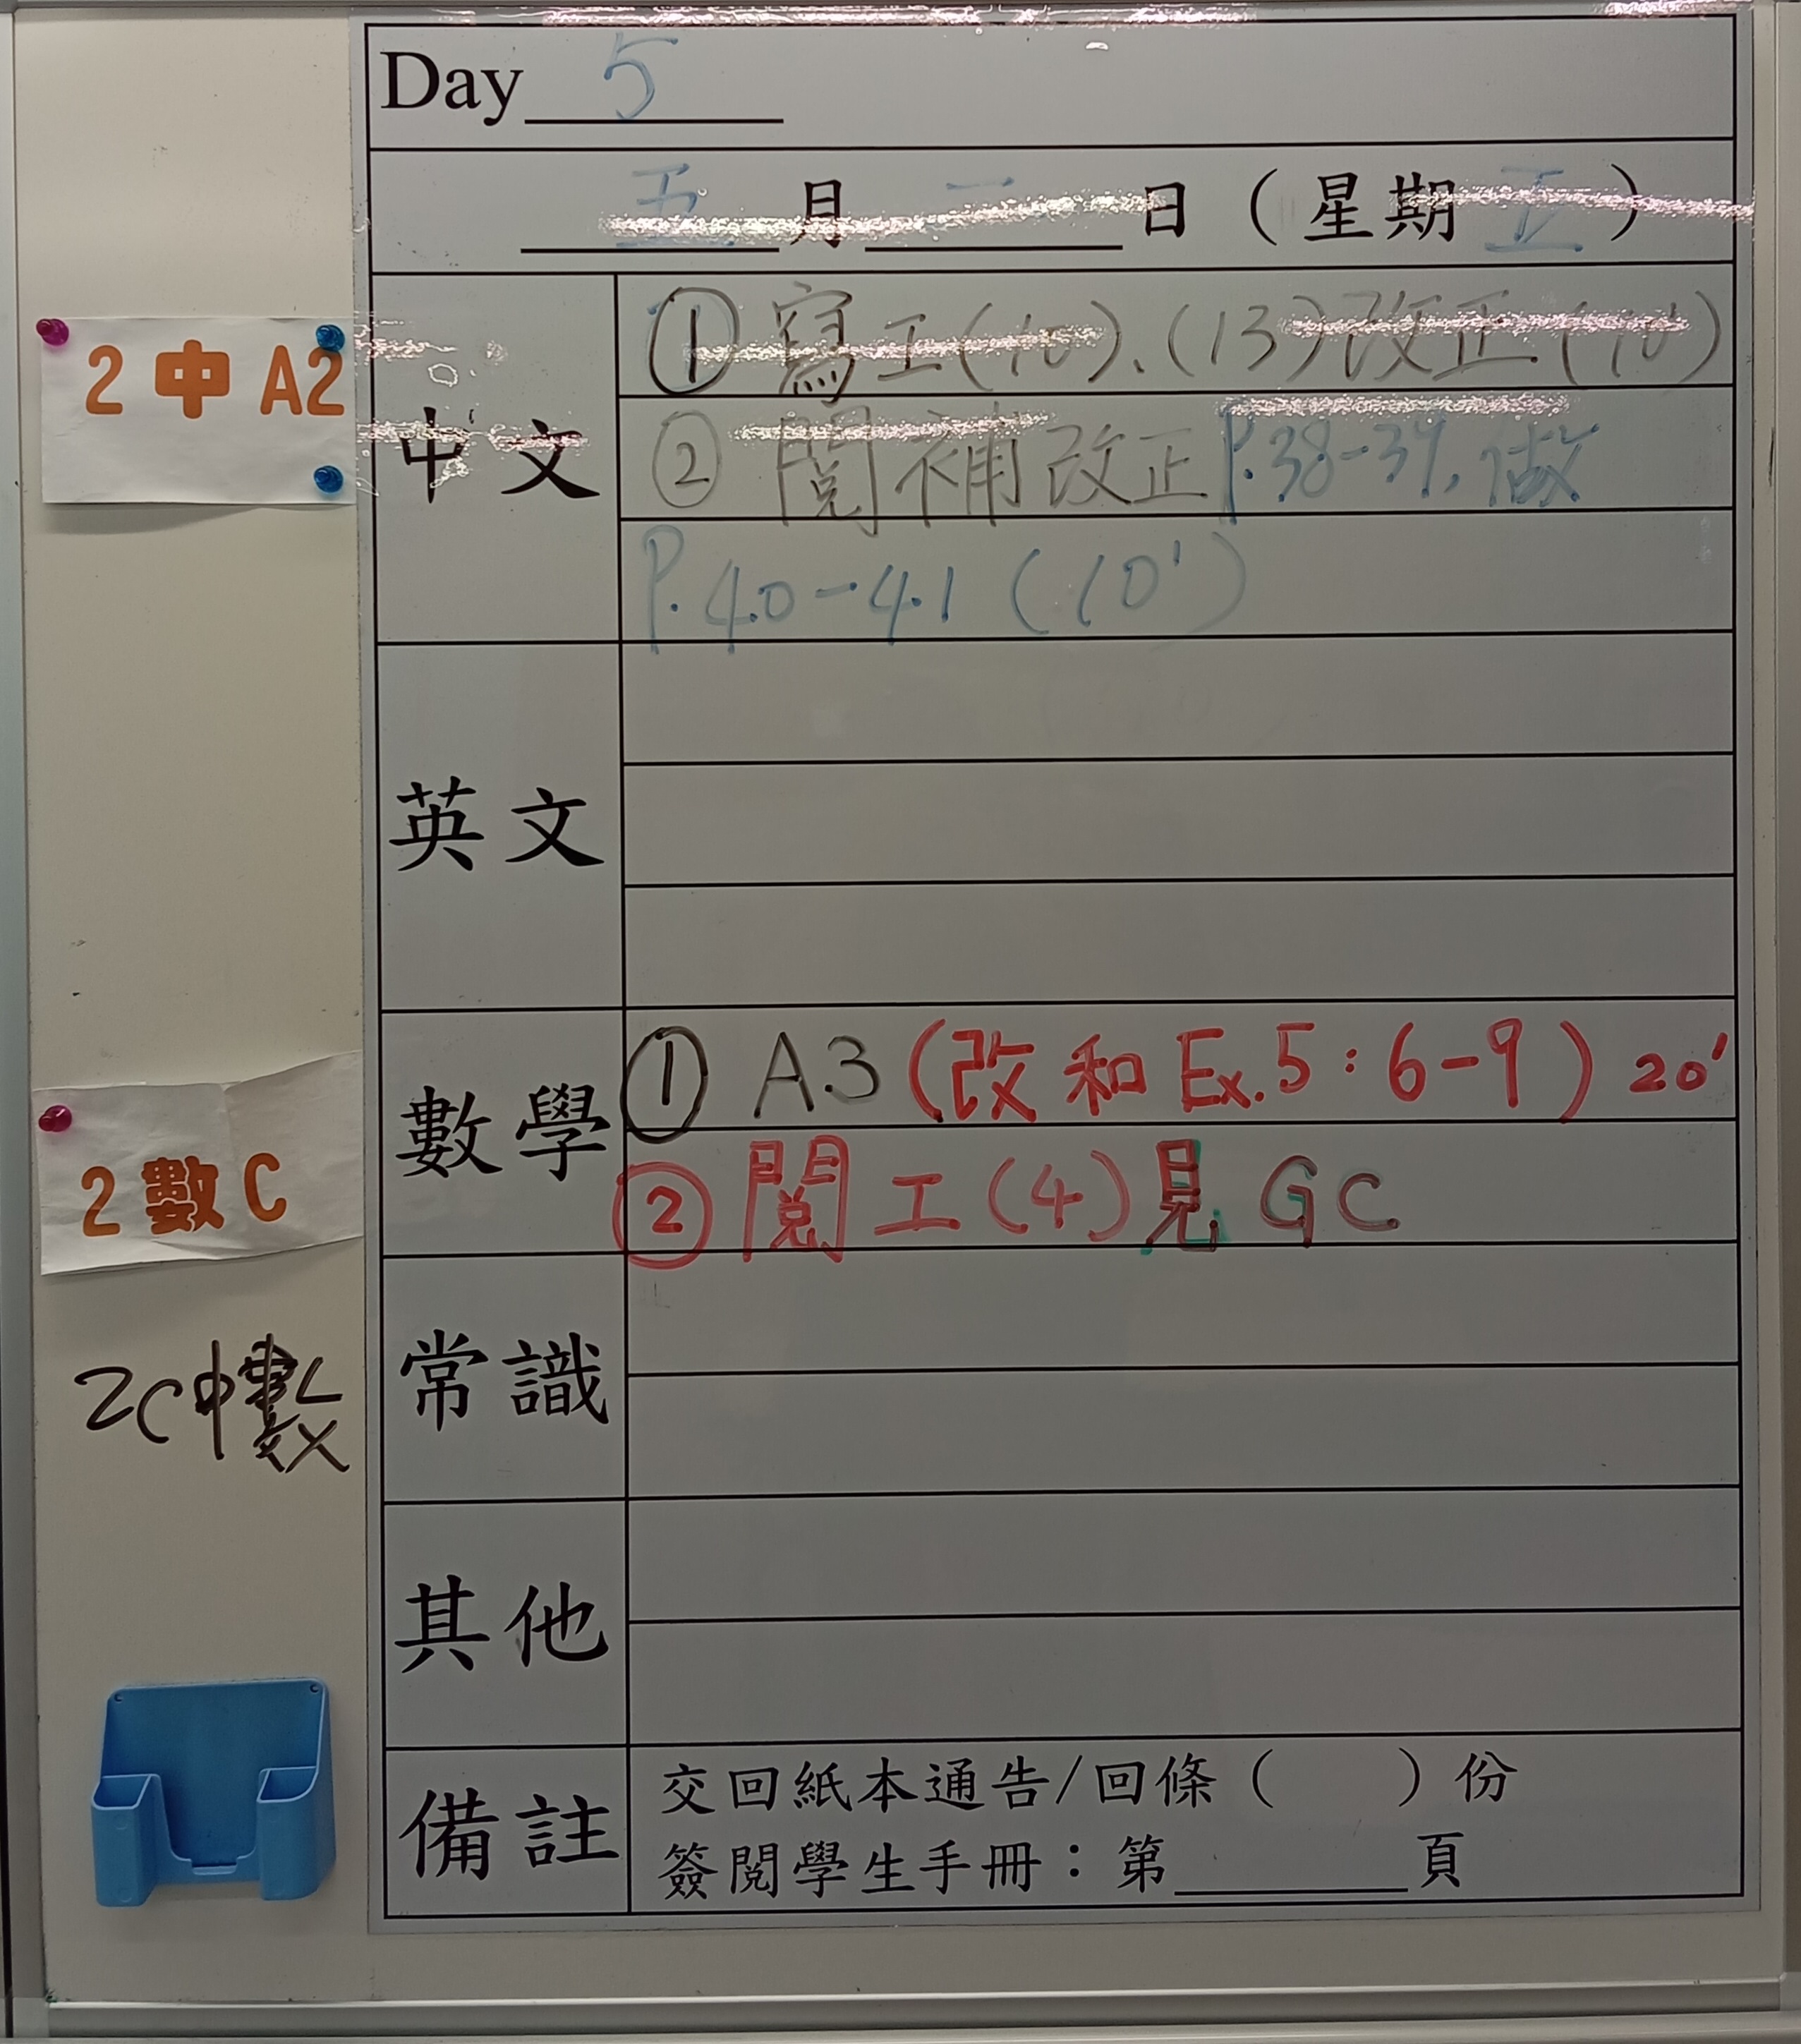 Day 5
五月二日(星期五)
2 中 A2
中文
① 寫工(10)、(13)改正(10')
② 閱補改正P.38-39,做
P.40-41(10')
英文
數學
① A3(改和Ex.5:6-9)20'
② 閱工(4)見GC
2 數 C
2C中數
常識
其他
備註
交回紙本通告/回條( )份
簽閱學生手冊:第______頁